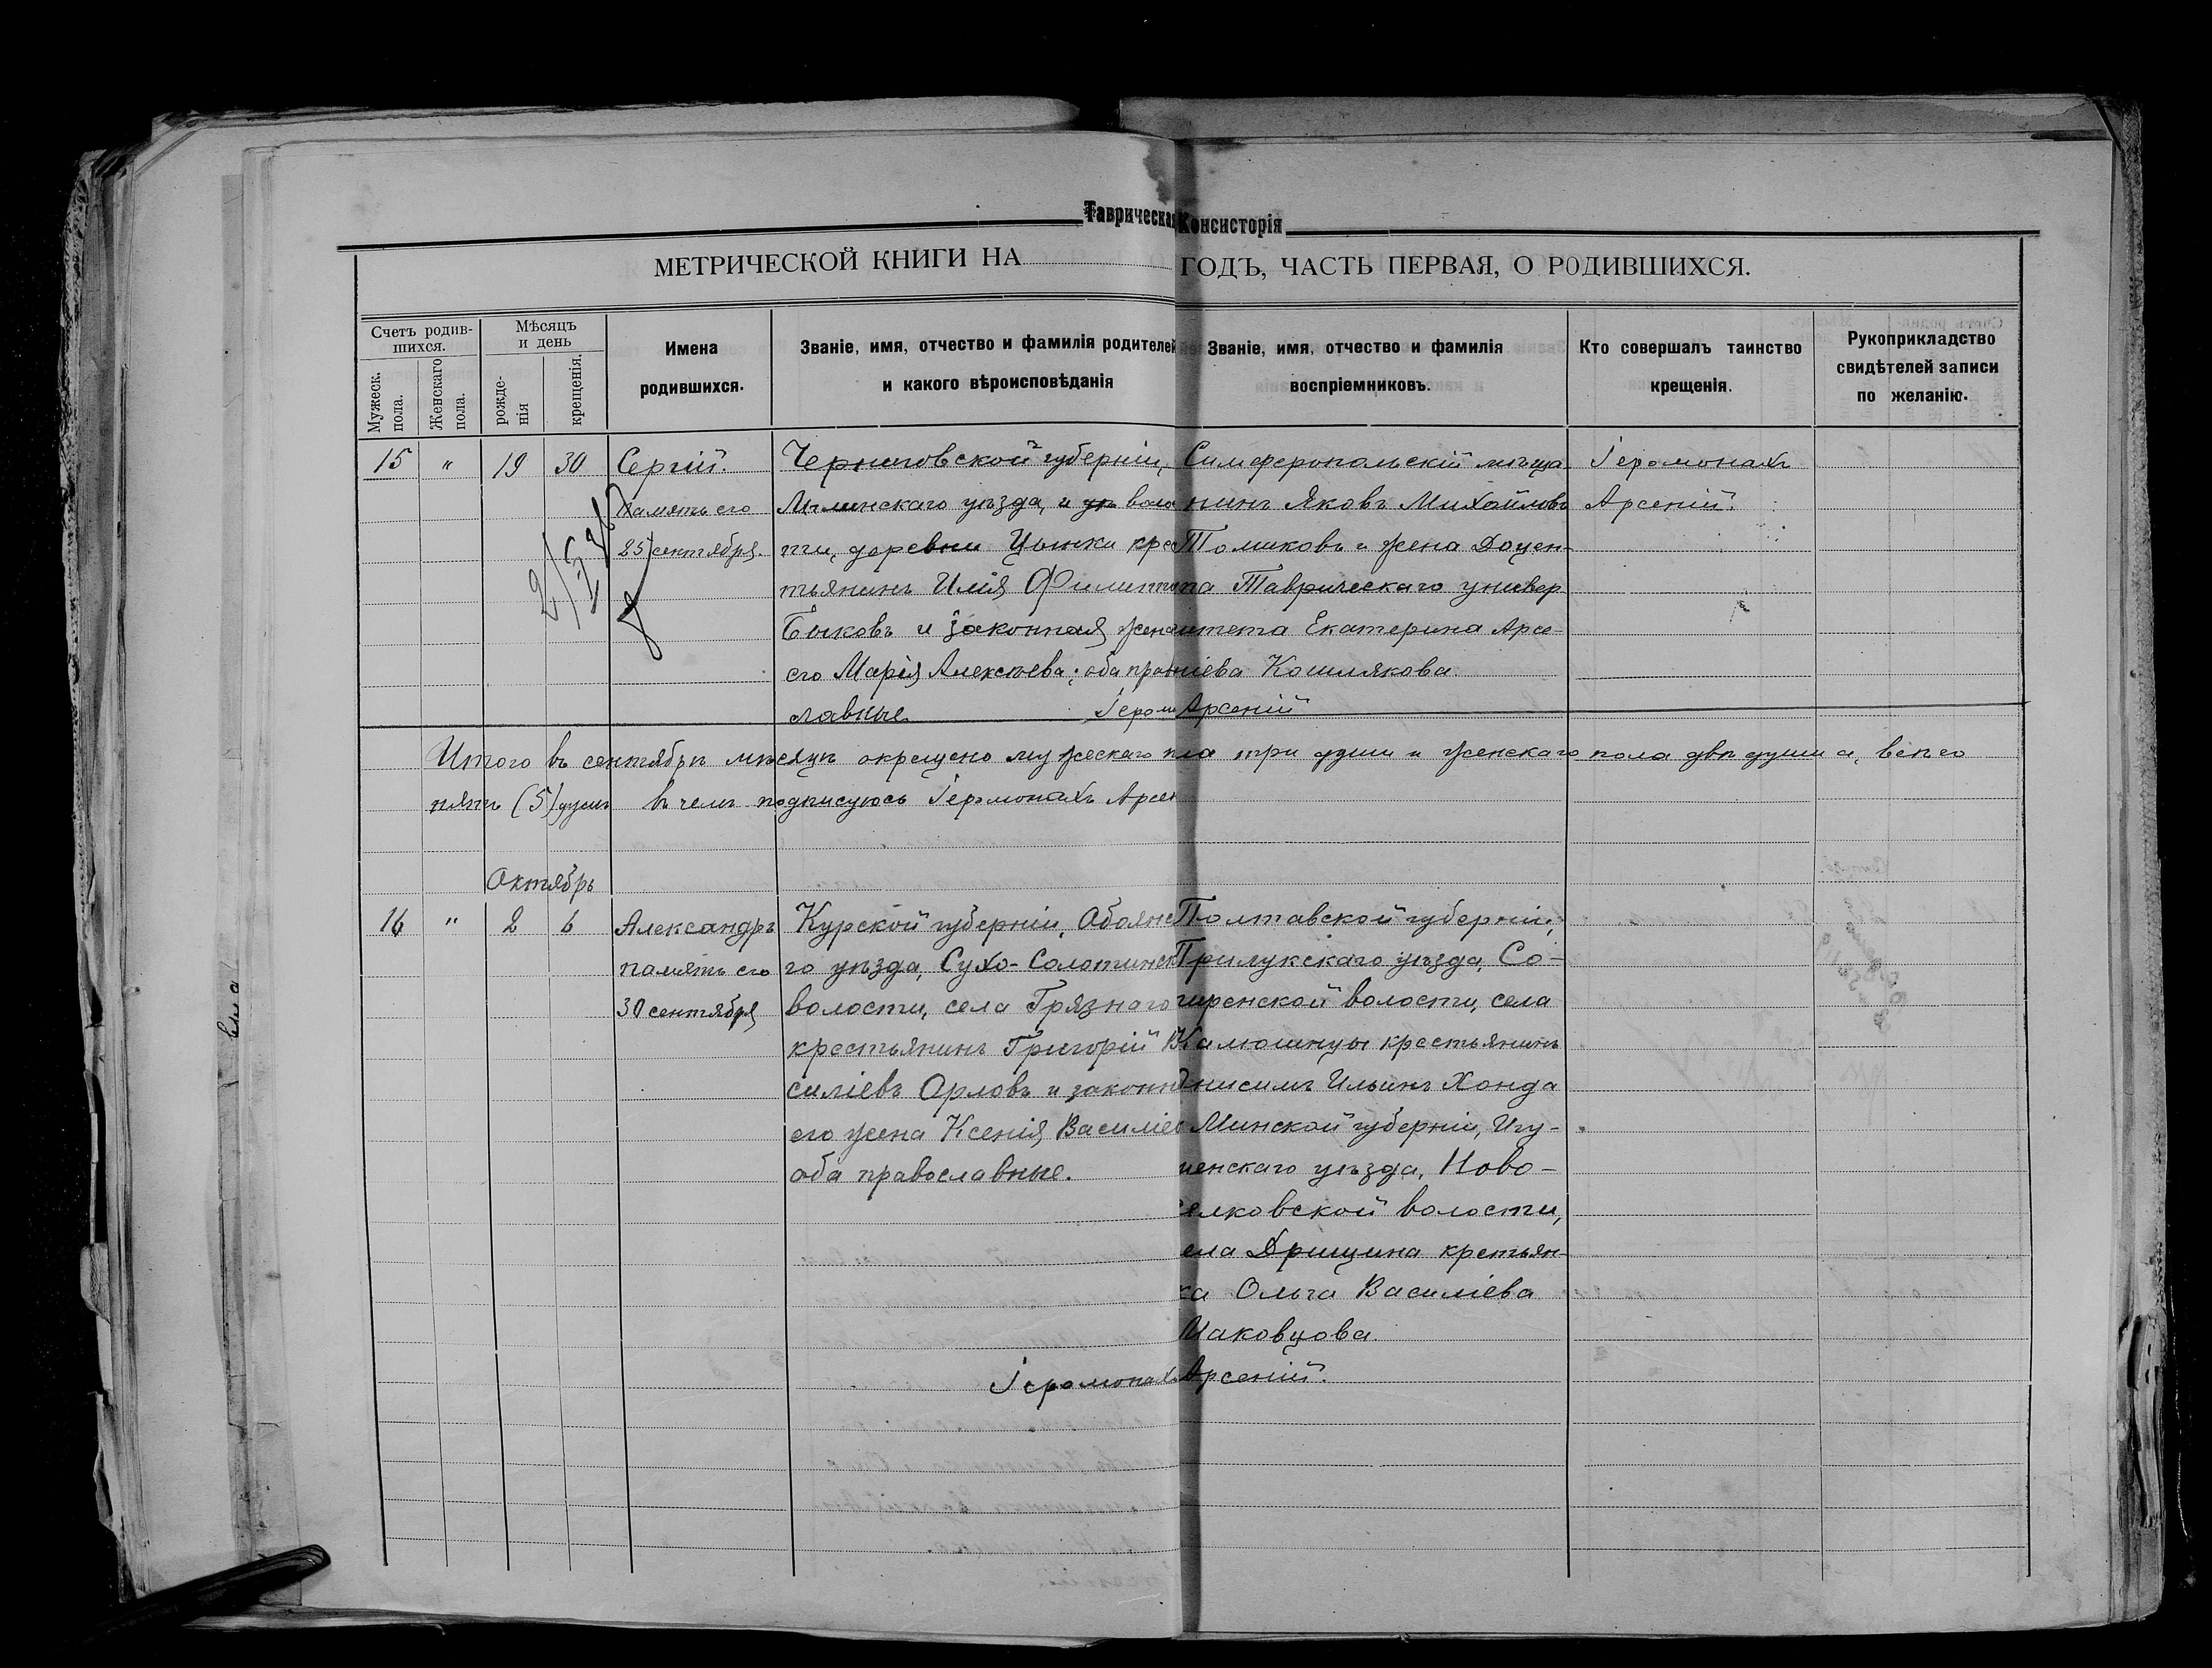 Таврическая Консисторія
МЕТРИЧЕСКОЙ КНИГИ НА ГОДЪ, ЧАСТЬ ПЕРВАЯ, О РОДИВШИХСЯ.
Счетъ родив-
шихся.
Мужеск.
пола.
Женскаго
пола.
Мѣсяцъ
и день
рожде-
нія
крещенія.
Имена
родившихся.
Званіе, имя, отчество и фамилія родителей
и какого вѣроисповѣданія
Званіе, имя, отчество и фамилія
воспріемниковъ.
Кто совершалъ таинство
крещенія.
Рукоприкладство
свидѣтелей записи
по желанію.
15 " 19 30
Сергій.
Память его
25 сентября.
Черниговской губерніи,
Мглинскаго уѣзда, и воло
сти, деревни Цынки крес
тьянинъ Илія Филиппо
Быковъ и законная жена
его Марія Алексѣева; оба право
славные.
Симферопольскій мѣща
нинъ Яковъ Михайловъ
Томиковъ и жена Доцен-
та Таврическаго универ
ситета Екатерина Арсе-
ніева Кошлякова.
Іеромонахъ
Арсеній.
Іером Арсеній
Итого въ сентябрѣ мѣсяцѣ окрещено мужескаго пола три души и женскаго пола двѣ души а, всего
пять (5) душъ въ чемъ подписуюсь Іеромонахъ Арсен
Октябрь
16 " 2 6
Александръ
память его
30 сентября
Курской губерніи, Обоянс
го уѣзда, Сухо-Солотинск
волости, села Грязнаго
крестьянинъ Григорій Ва
силіевъ Орловъ и законн
его жена Ксенія Василіев
оба православные.
Полтавской губерніи,
Прилукскаго уѣзда, Со-
гиренской волости, села
Калюжинцы крестьянинъ
Онисимъ Ильинъ Хонда
Минской губерніи, Игу-
менскаго уѣзда, Ново-
селковской волости,
села Дрищина крестьян-
ка Ольга Василіева
Маковцова.
Іеромонахъ Арсеній.